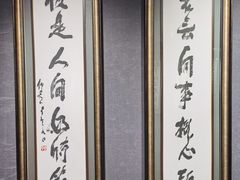 若無閒事掛心頭
便是人間好時節